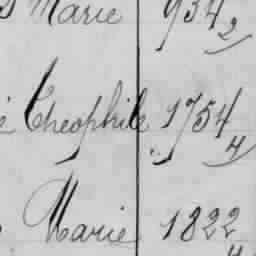 Marie 934 2
Theophile 1754 4
Marie 1822 4